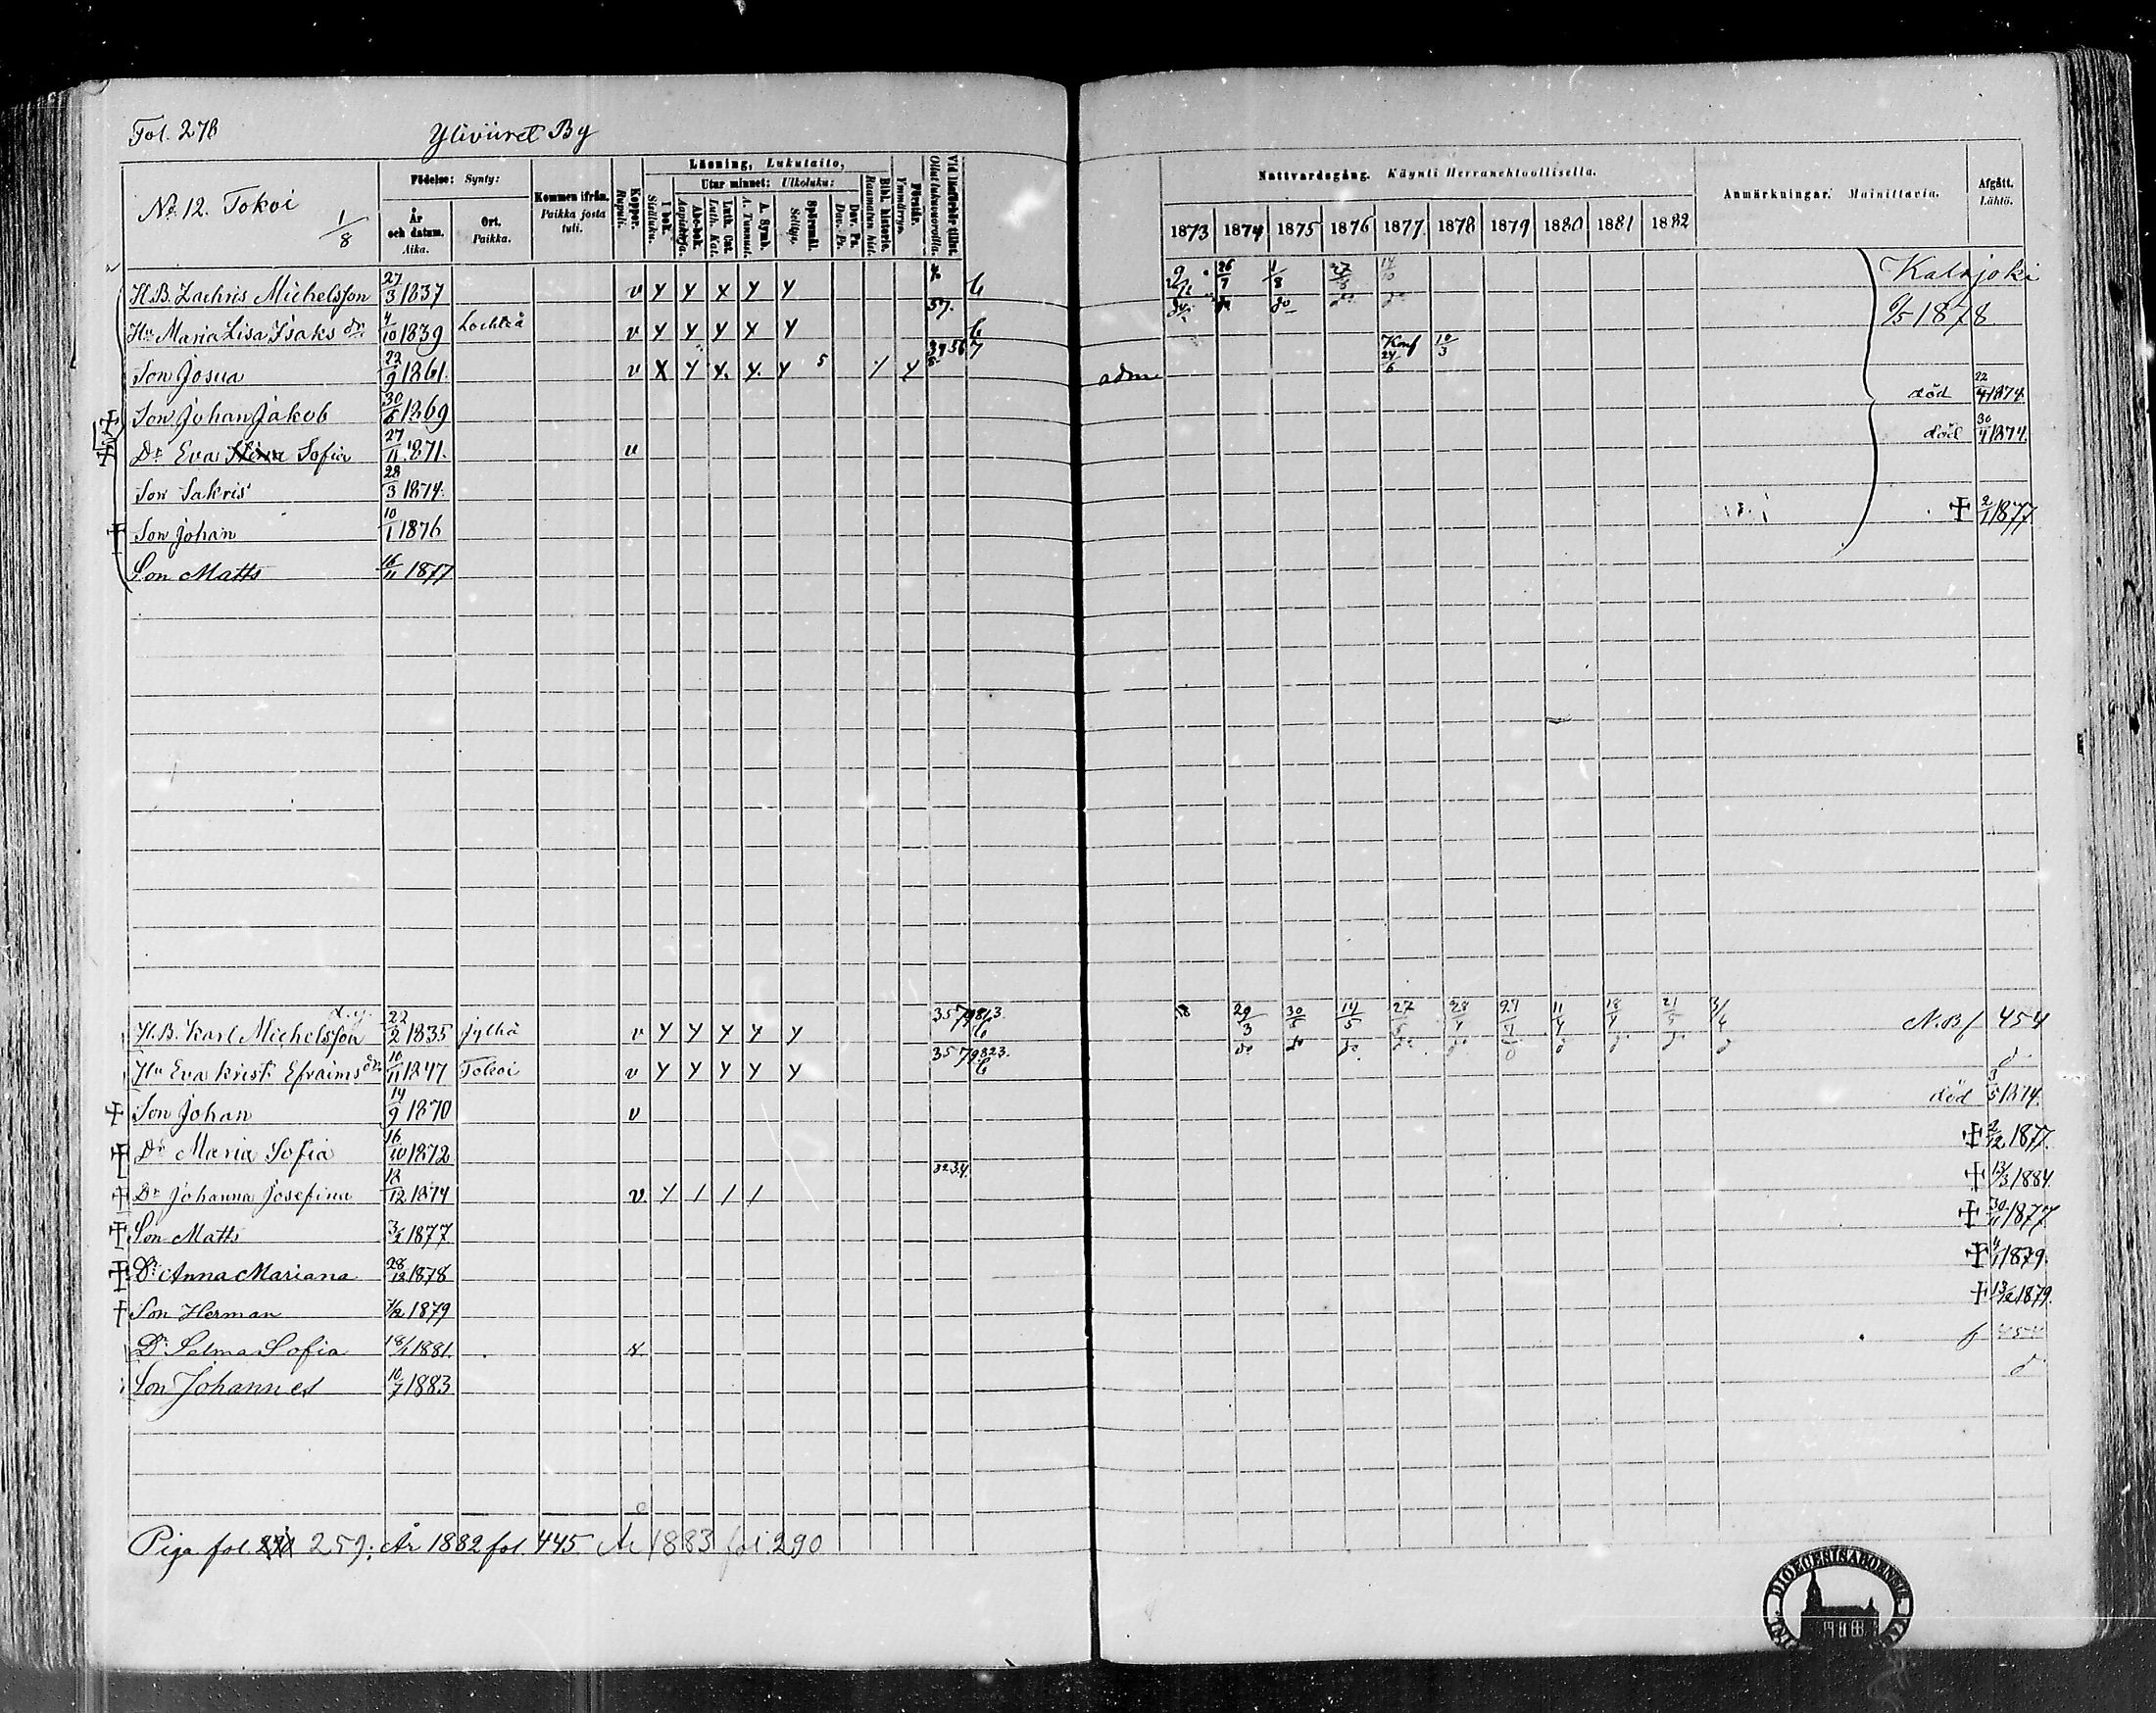 Fol. 278 Yliviiret By
Nº 12. Tokoi 1/8
Födelse: Synty:
År och datum. Aika.
Ort. Paikka.
Kommen ifrån. Paikka josta tuli.
Koppor. Rupuli.
Läsning, Lukutaito,
I bok. Sisäluku.
Utur minnet: Ulkoluku:
Abc-bok. Aapiskirja.
Luth. Cat. Luth. Kat.
A. Symb. A. Tunnust.
Spörsmål. Selitys.
Dav. Ps. Dav. Ps.
Bibl. historie. Raamatun hist.
Förstår. Ymmärrys.
Vid läsförhör tillst. Ollut lukuvuoroilla.
Nattvardsgång. Käynti Herranehtoollisella.
1873 1874 1875 1876 1877 1878 1879 1880 1881 1882
Anmärkningar. Mainittavia.
Afgått. Lähtö.
H.B. Zachris Michelsson 27/3 1837 v y y x y y 6 26/7 1/8 27/5 Kalajoki
Hu Maria Lisa Isaks dr 4/10 1839 Lochteå v y y y x y 57. 6 do do do do 1878
Son Josua 22/9 1861. v x y y. y. y 5 y 7 adm Konf 24/6 10/3
Son Johan Jakob 30/5 1869 död 22/4 1874.
Dr Eva Sofia 27/11 1871. v död 30/4 1874.
Son Sakris 28/3 1874.
Son Johan 10/1 1876 † 2/1 1877
Son Matts 16/11 1877
H.B. Karl Michelsson 22/2 1835 Jylhä v y y y y y 29/3 30/5 14/5 27/5 28/4 27/4 11/4 18/4 21/5 3/6 N.B f 454
Hu Eva Krist. Efraims dr 10/11 1847 Tokoi v y y y y y do do do do do do
Son Johan 14/9 1870 v död 3/5 1874.
Dr Maria Sofia 16/10 1872 † 2/12 1877.
Dr Johanna Josefina 18/12 1874 v. y / / / † 13/3 1884.
Son Matts 3/2 1877 † 30/11 1877
Dr Anna Mariana 28/12 1878 † 1879.
Son Herman 1879 † 13/12 1879.
Dr Selma Sofia 18/1 1881. f 454
Son Johannes 10/7 1883
Piga fol. 259; År 1882 fol. 445. År 1883 fol. 290
DIOECESIS ABOENSIS